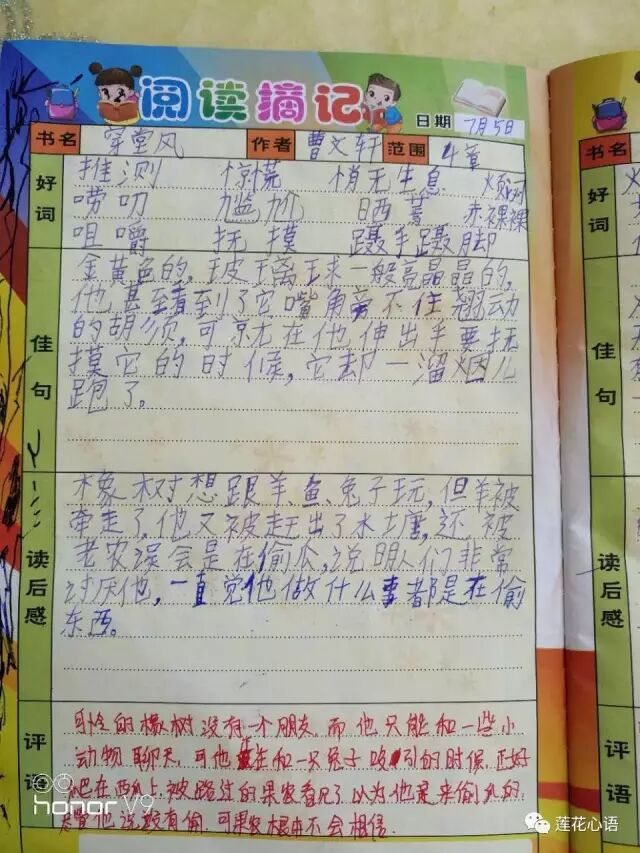 阅读摘记
日期 7月5日
书名 穿堂风 作者 曹文轩 范围 4章
书名
好词
推测 惊慌 悄无生息
唠叨 尴尬 晒蔫 赤裸裸
咀嚼 抚摸 蹑手蹑脚
好词
佳句
金黄色的,玻璃球一般亮晶晶的,
他甚至看到了它嘴角旁不住翘动
的胡须,可就在他伸出手要抚
摸它的时候,它却一溜烟儿
跑了。
佳句
读后感
橡树想跟羊、鱼、兔子玩,但羊被
牵走了,他又被赶出了水塘,还被
老农误会是在偷瓜,说明人们非常
讨厌他,一直觉他做什么事都是在偷
东西。
读后感
评语
可怜的橡树没有一个朋友,而他只能和一些小
动物聊天,可他正在和一只兔子吸引的时候,正好
在西瓜上,被路过的果农看见了以为他是来偷瓜的,
尽管他说没有偷,可果农根本不会相信.
评语
honor V9
莲花心语